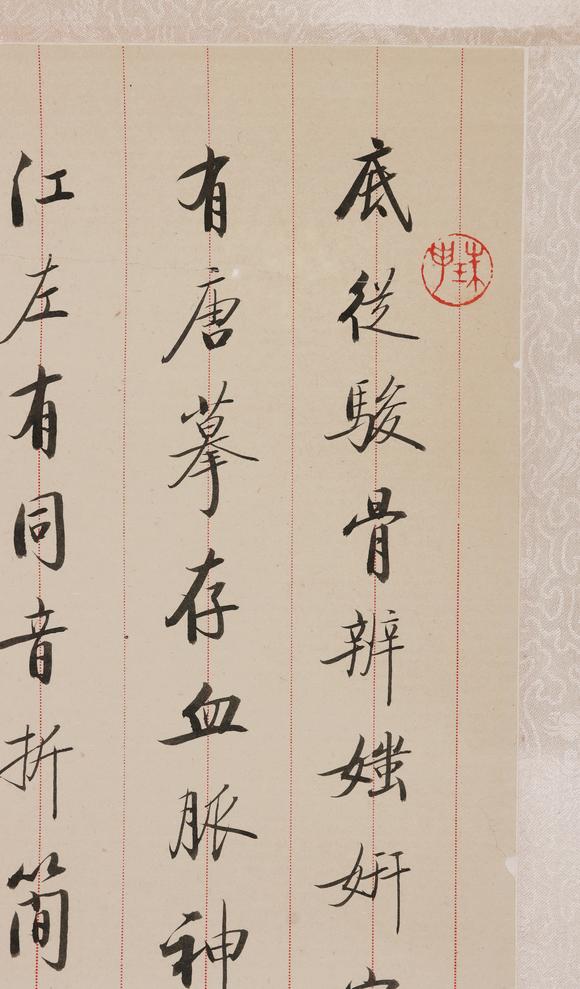 底從駿骨辨媸妍
有唐摹存血脈神
江左有同音折簡